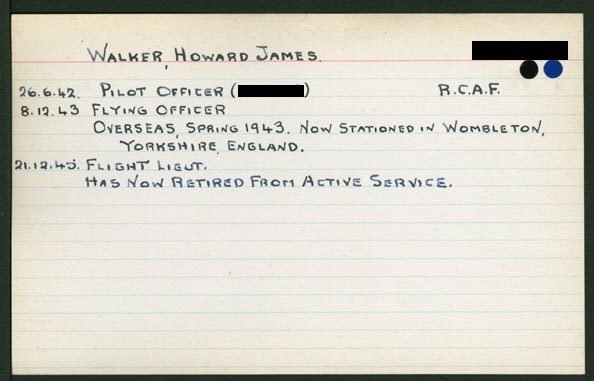 WALKER, HOWARD JAMES.
26.6.42. PILOT OFFICER ( ) R.C.A.F.
8.12.43 FLYING OFFICER
OVERSEAS, SPRING 1943. NOW STATIONED IN WOMBLETON,
YORKSHIRE, ENGLAND.
21.12.45. FLIGHT LIEUT.
HAS NOW RETIRED FROM ACTIVE SERVICE.